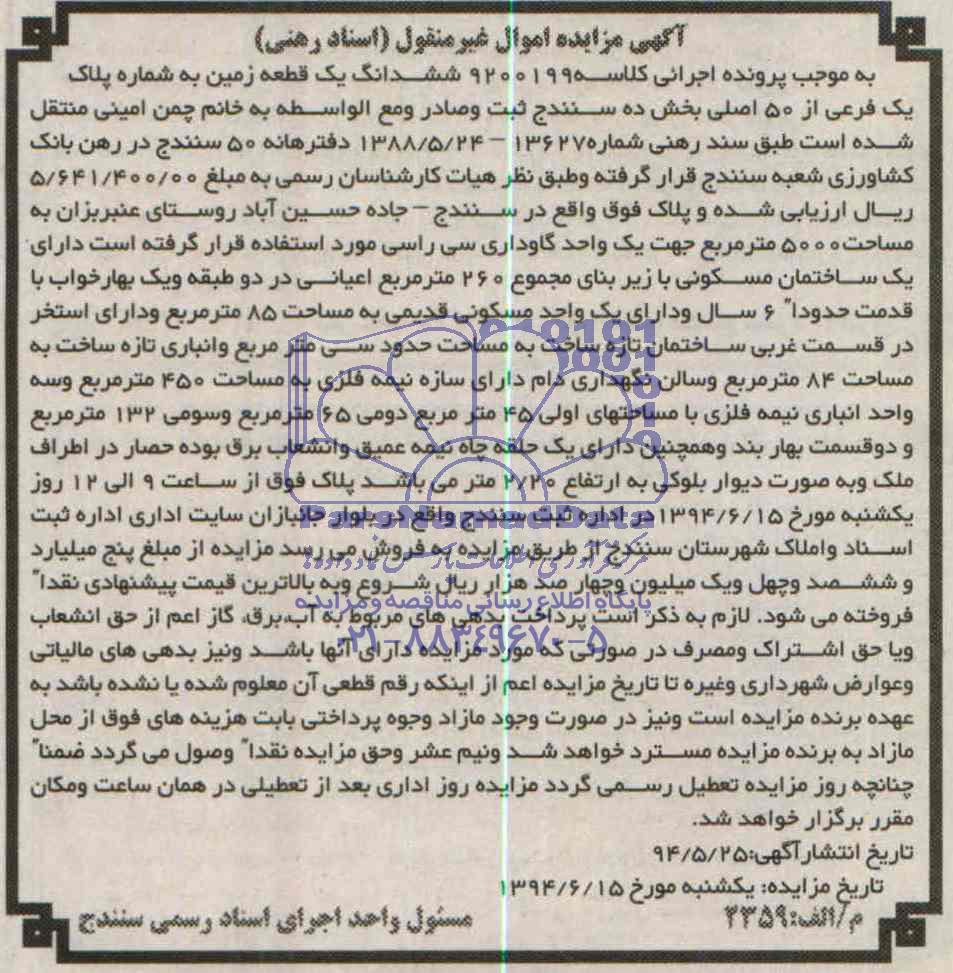 آگهی مزایده اموال غیرمنقول (اسناد رهنی)
به موجب پرونده اجرائی کلاسه۹۲۰۰۱۹۹ ششدانگ یک قطعه زمین به شماره پلاک
یک فرعی از ۵۰ اصلی بخش ده سنندج ثبت وصادر ومع الواسطه به خانم چمن امینی منتقل
شده است طبق سند رهنی شماره۱۳۶۲۷ – ۱۳۸۸/۵/۲۴ دفترهانه ۵۰ سنندج در رهن بانک
کشاورزی شعبه سنندج قرار گرفته وطبق نظر هیات کارشناسان رسمی به مبلغ ۵/۶۴۱/۴۰۰/۰۰
ریال ارزیابی شده و پلاک فوق واقع در سنندج – جاده حسین آباد روستای عنبربزان به
مساحت۵۰۰۰ مترمربع جهت یک واحد گاوداری سی راسی مورد استفاده قرار گرفته است دارای
یک ساختمان مسکونی با زیر بنای مجموع ۲۶۰ مترمربع اعیانی در دو طبقه ویک بهارخواب با
قدمت حدودا" ۶ سال ودارای یک واحد مسکونی قدیمی به مساحت ۸۵ مترمربع ودارای استخر
در قسمت غربی ساختمان تازه ساخت به مساحت حدود سی متر مربع وانباری تازه ساخت به
مساحت ۸۴ مترمربع وسالن نگهداری دام دارای سازه نیمه فلزی به مساحت ۴۵۰ مترمربع وسه
واحد انباری نیمه فلزی با مساحتهای اولی ۴۵ متر مربع دومی ۶۵ مترمربع وسومی ۱۳۲ مترمربع
و دوقسمت بهار بند وهمچنین دارای یک حلقه چاه نیمه عمیق وانشعاب برق بوده حصار در اطراف
ملک وبه صورت دیوار بلوکی به ارتفاع ۲/۲۰ متر می باشد پلاک فوق از ساعت ۹ الی ۱۲ روز
یکشنبه مورخ ۱۳۹۴/۶/۱۵در اداره ثبت سنندج واقع در بلوار جانبازان سایت اداری اداره ثبت
اسناد واملاک شهرستان سنندج از طریق مزایده به فروش می رسد مزایده از مبلغ پنج میلیارد
و ششصد وچهل ویک میلیون وچهار صد هزار ریال شروع وبه بالاترین قیمت پیشنهادی نقدا"
فروخته می شود. لازم به ذکر است پرداخت بدهی های مربوط به آب،برق، گاز اعم از حق انشعاب
ویا حق اشتراک ومصرف در صورتی که مورد مزایده دارای آنها باشد ونیز بدهی های مالیاتی
وعوارض شهرداری وغیره تا تاریخ مزایده اعم از اینکه رقم قطعی آن معلوم شده یا نشده باشد به
عهده برنده مزایده است ونیز در صورت وجود مازاد وجوه پرداختی بابت هزینه های فوق از محل
مازاد به برنده مزایده مسترد خواهد شد ونیم عشر وحق مزایده نقدا" وصول می گردد ضمنا"
چنانچه روز مزایده تعطیل رسمی گردد مزایده روز اداری بعد از تعطیلی در همان ساعت ومکان
مقرر برگزار خواهد شد.
تاریخ انتشارآگهی:۹۴/۵/۲۵
تاریخ مزایده: یکشنبه مورخ ۱۳۹۴/۶/۱۵
م/الف:۲۳۵۹
مسئول واحد اجرای اسناد رسمی سنندج
پایگاه اطلاع رسانی مناقصه و مزایده
۰۲۱-۸۸۳۴۹۶۷۰-۵